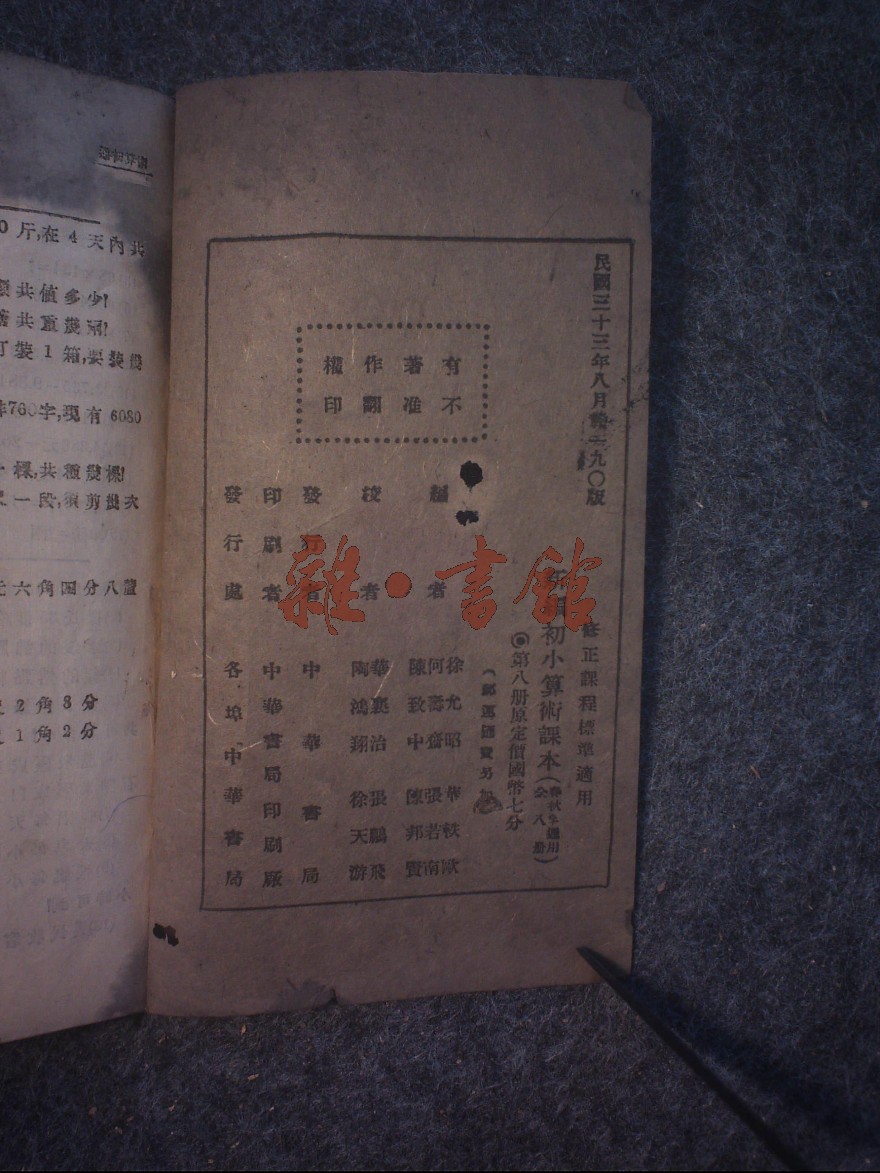 民國三十三年八月第一九〇版
修正課程標準適用
新編初小算術課本（春秋季適用 全八册）
◎第八册原定價國幣七分
（郵運匯費另加）
有著作權
不准翻印
編者 徐允昭 華軼歐 何壽奮 張若南 陳致中 陳邦賢
校者 華襄治 張鵬飛 陶鴻翔 徐天游
發行者 中華書局
印刷者 中華書局印刷廠
發行處 各埠中華書局
雜·書館
0斤,在4天內共
共值多少?
共重幾兩?
訂裝1箱,要裝幾
排760字,現有6080
棵,共種幾棵?
一段,須剪幾次
元六角四分八釐
2角3分
1角2分